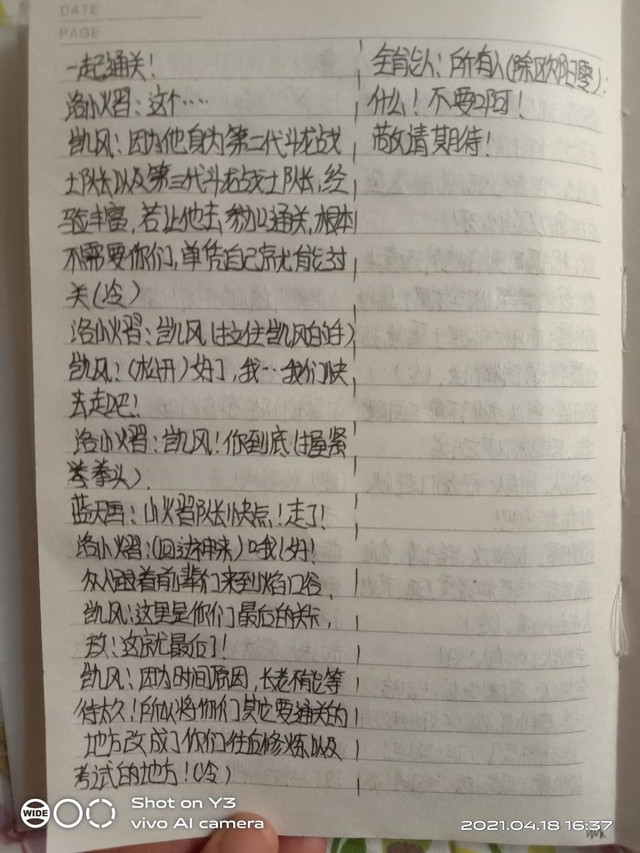 DATE
PAGE
一起通关！
洛小熠：这个····
凯风：因为他身为第二代斗龙战
士队长以及第三代斗龙战士队长，经
验丰富，若让他去参加以通关，根本
不需要你们，单凭自己就能过
关（冷）
洛小熠：凯风（拉住凯风的手）
凯风：（松开）好了，我··我们快
去走吧！
洛小熠：凯风！你到底（握紧
拳头）.
蓝天画：小熠队长快点！走了！
洛小熠：（回过神来）哦！好！
众人跟着前辈们来到火焰门谷，
凯风：这里是你们最后的关卡，
：这就最后了！
凯风：因为时间原因，长老不能等
待太久！所以将你们其它要通关的
地方改成了你们往后修炼以及
考试的地方！（冷）
全肖龙人：所有人（除欧阳零）：
什么！不要啊！
敬请期待！
WIDE
Shot on Y3
vivo AI camera
2021.04.18 16:37